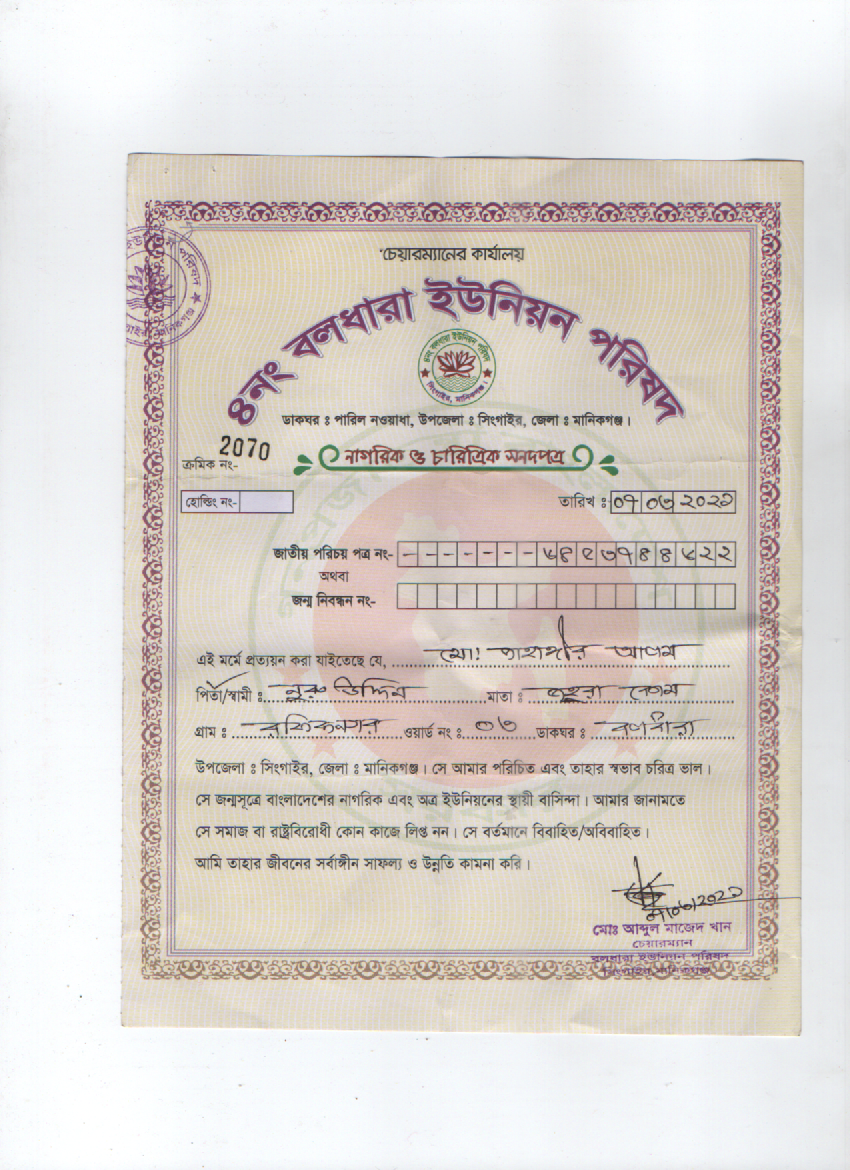 চেয়ারম্যানের কার্যালয়
৪নং বলধারা ইউনিয়ন পরিষদ
৪নং বলধারা ইউনিয়ন পরিষদ
সিংগাইর, মানিকগঞ্জ।
ডাকঘর ঃ পারিল নওয়াধা, উপজেলা ঃ সিংগাইর, জেলা ঃ মানিকগঞ্জ।
ক্রমিক নং- 2070
নাগরিক ও চারিত্রিক সনদপত্র
হোল্ডিং নং-
তারিখ ঃ
জাতীয় পরিচয় পত্র নং-
অথবা
জন্ম নিবন্ধন নং-
এই মর্মে প্রত্যয়ন করা যাইতেছে যে, মোঃ জাহাঙ্গীর আলম
পিতা/স্বামী ঃ নুরু উদ্দিন মাতা ঃ জহুরা বেগম
গ্রাম ঃ ওয়ার্ড নং ঃ ০৩ ডাকঘর ঃ
উপজেলা ঃ সিংগাইর, জেলা ঃ মানিকগঞ্জ। সে আমার পরিচিত এবং তাহার স্বভাব চরিত্র ভাল।
সে জন্মসূত্রে বাংলাদেশের নাগরিক এবং অত্র ইউনিয়নের স্থায়ী বাসিন্দা। আমার জানামতে
সে সমাজ বা রাষ্ট্রবিরোধী কোন কাজে লিপ্ত নন। সে বর্তমানে বিবাহিত/অবিবাহিত।
আমি তাহার জীবনের সর্বাঙ্গীন সাফল্য ও উন্নতি কামনা করি।
মোঃ আব্দুল মাজেদ খান
চেয়ারম্যান
বলধারা ইউনিয়ন পরিষদ
সিংগাইর মানিকগঞ্জ